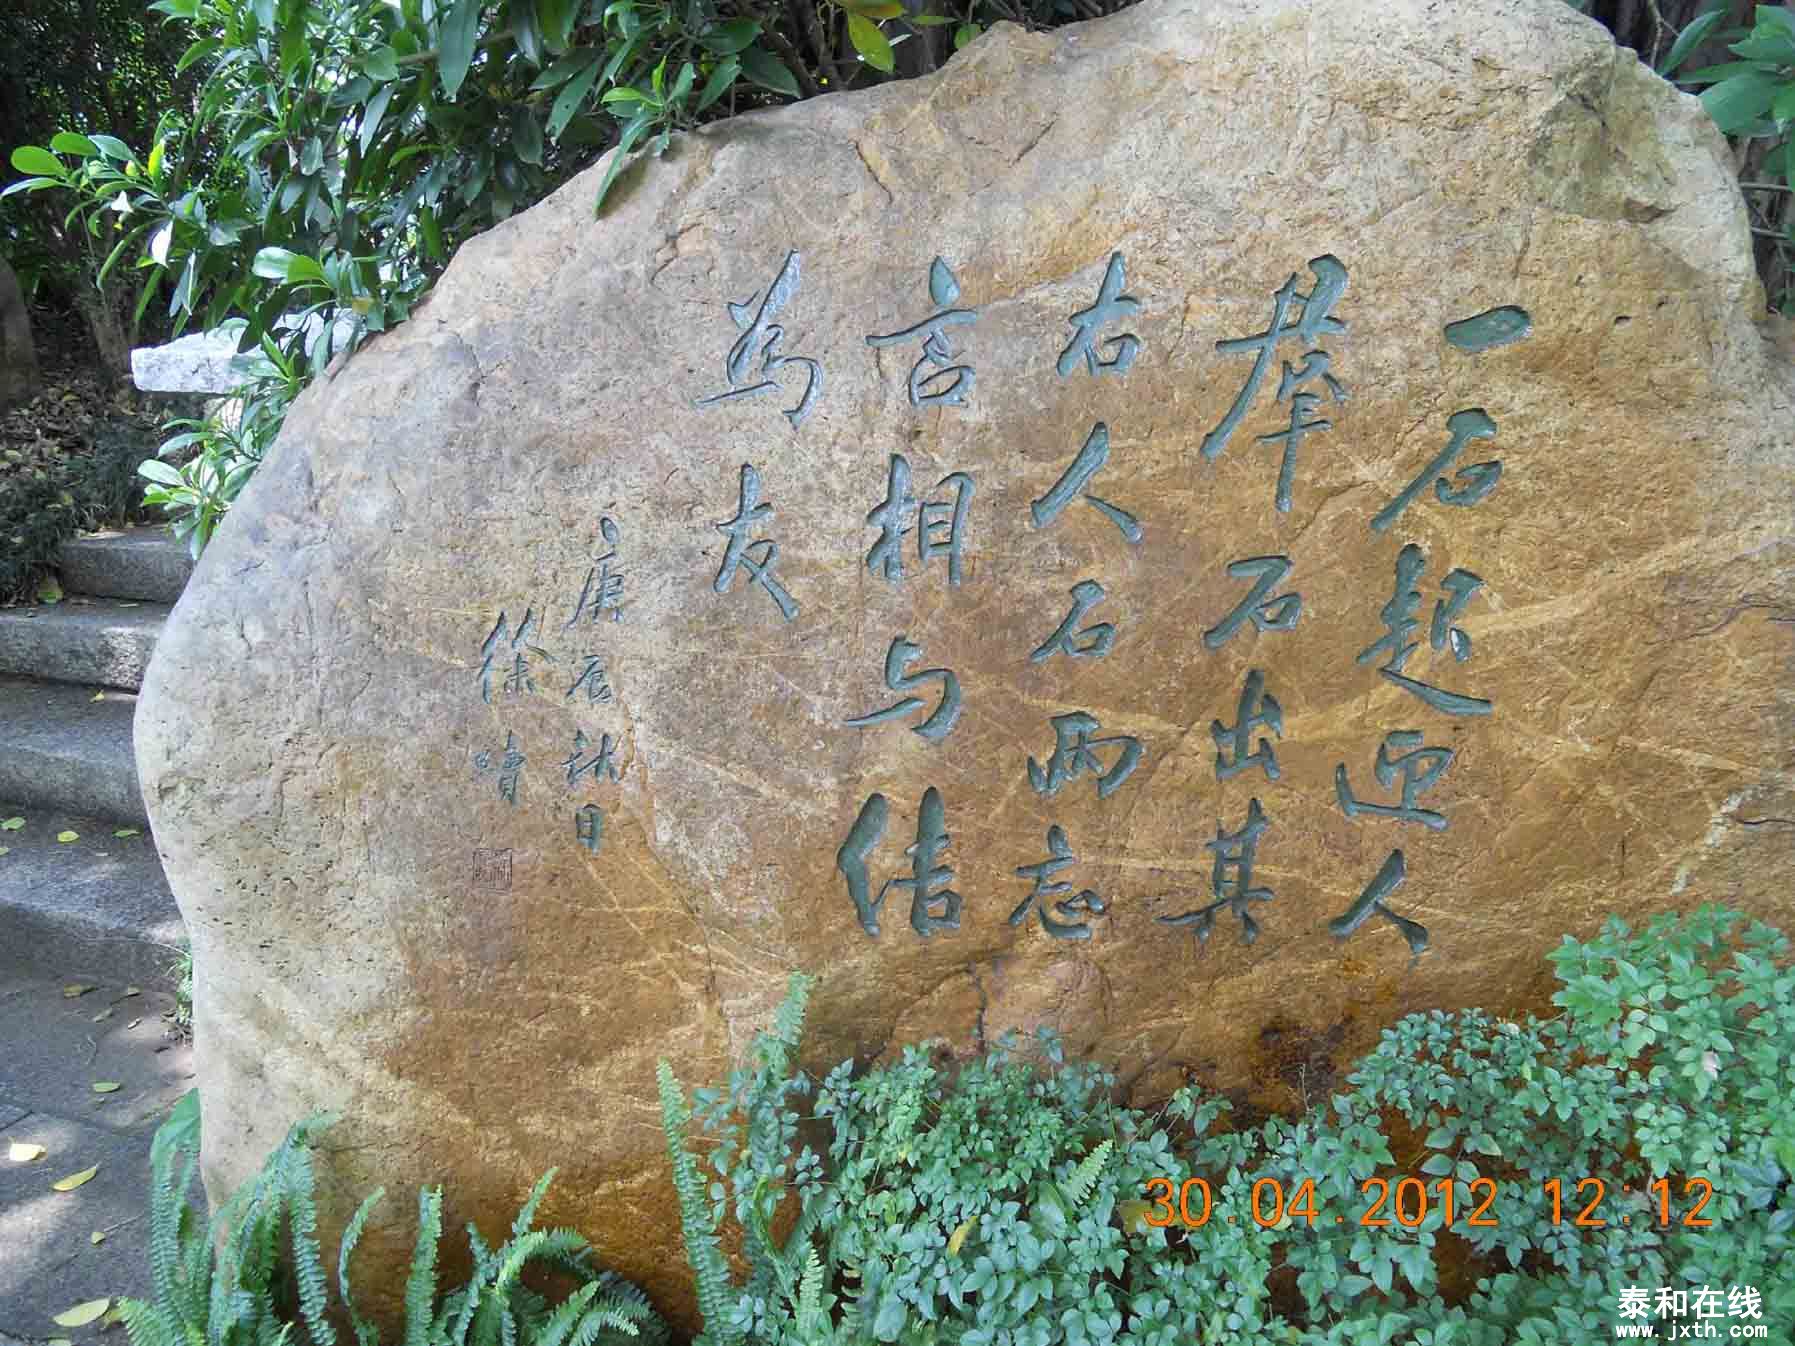 一石起迎人
群石出其
右人石两忘
言相与结
為友
庚辰秋日
徐
30.04.2012 12:12
泰和在线
www.jxth.com